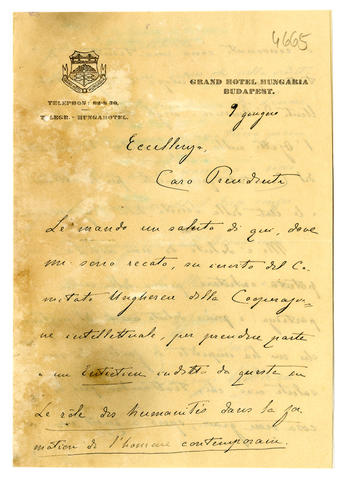 4665
GRAND HOTEL HUNGÁRIA
BUDAPEST.
TELEPHON: 62-8 30.
TELEGR.: HUNGAHOTEL.
9 giugno
Eccellenza,
Caro Presidente
Le mando un saluto di qui, dove
mi sono recato, su invito del Co-
mitato Ungherese della Cooperazio-
ne intellettuale, per prendere parte
a un Entretien indetto da questa su
Le rôle des humanités dans la for-
mation de l'homme contemporain.